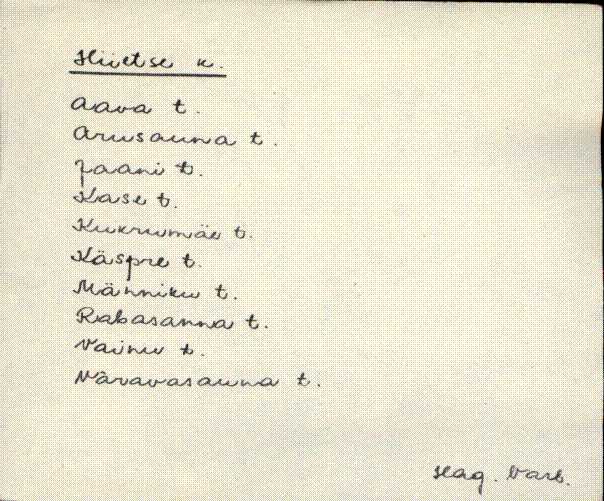 Hiietse k.
Aava t.
Arusauna t.
Jaani t.
Kase t.
Kukrumäe t.
Käspre t.
Männiku t.
Rabasauna t.
Vainu t.
Väravasauna t.
Hag. Varb.